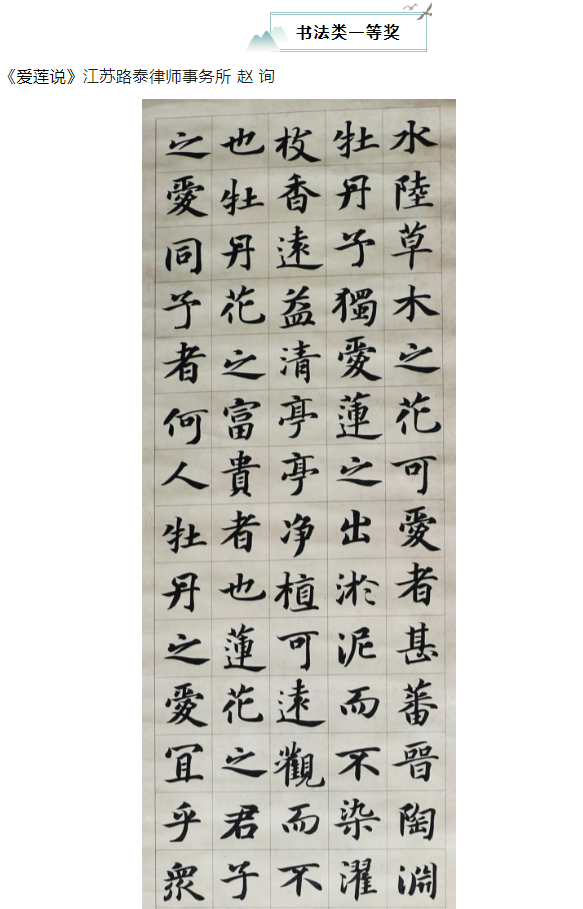 书法类一等奖
《爱莲说》江苏路泰律师事务所 赵 询
水陸草木之花可愛者甚蕃晉陶淵
牡丹予獨愛蓮之出淤泥而不染濯
枝香遠益清亭亭净植可遠觀而不
也牡丹花之富貴者也蓮花之君子
之愛同予者何人牡丹之愛冝乎衆